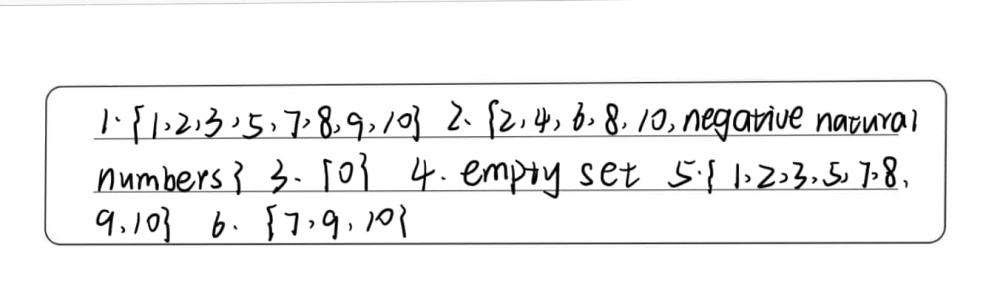 1. {1,2,3,5,7,8,9,10} 2. {2,4,6,8,10,negative natural
numbers} 3. {0} 4. empty set 5.{1,2,3,5,7,8,
9,10} 6. {7,9,10}